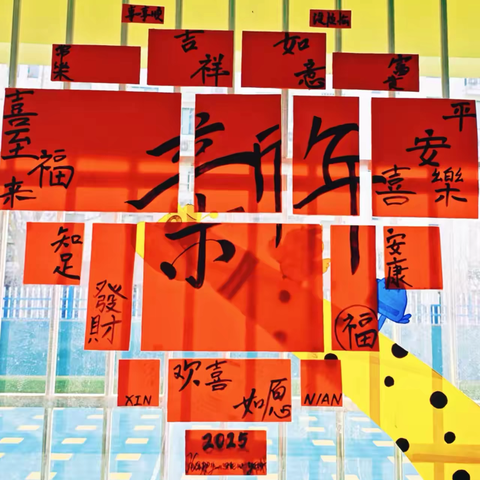 吉祥
如意
喜至福来
新年
平安喜樂
知足
發財
安康
福
XIN
欢喜
如愿
NIAN
2025